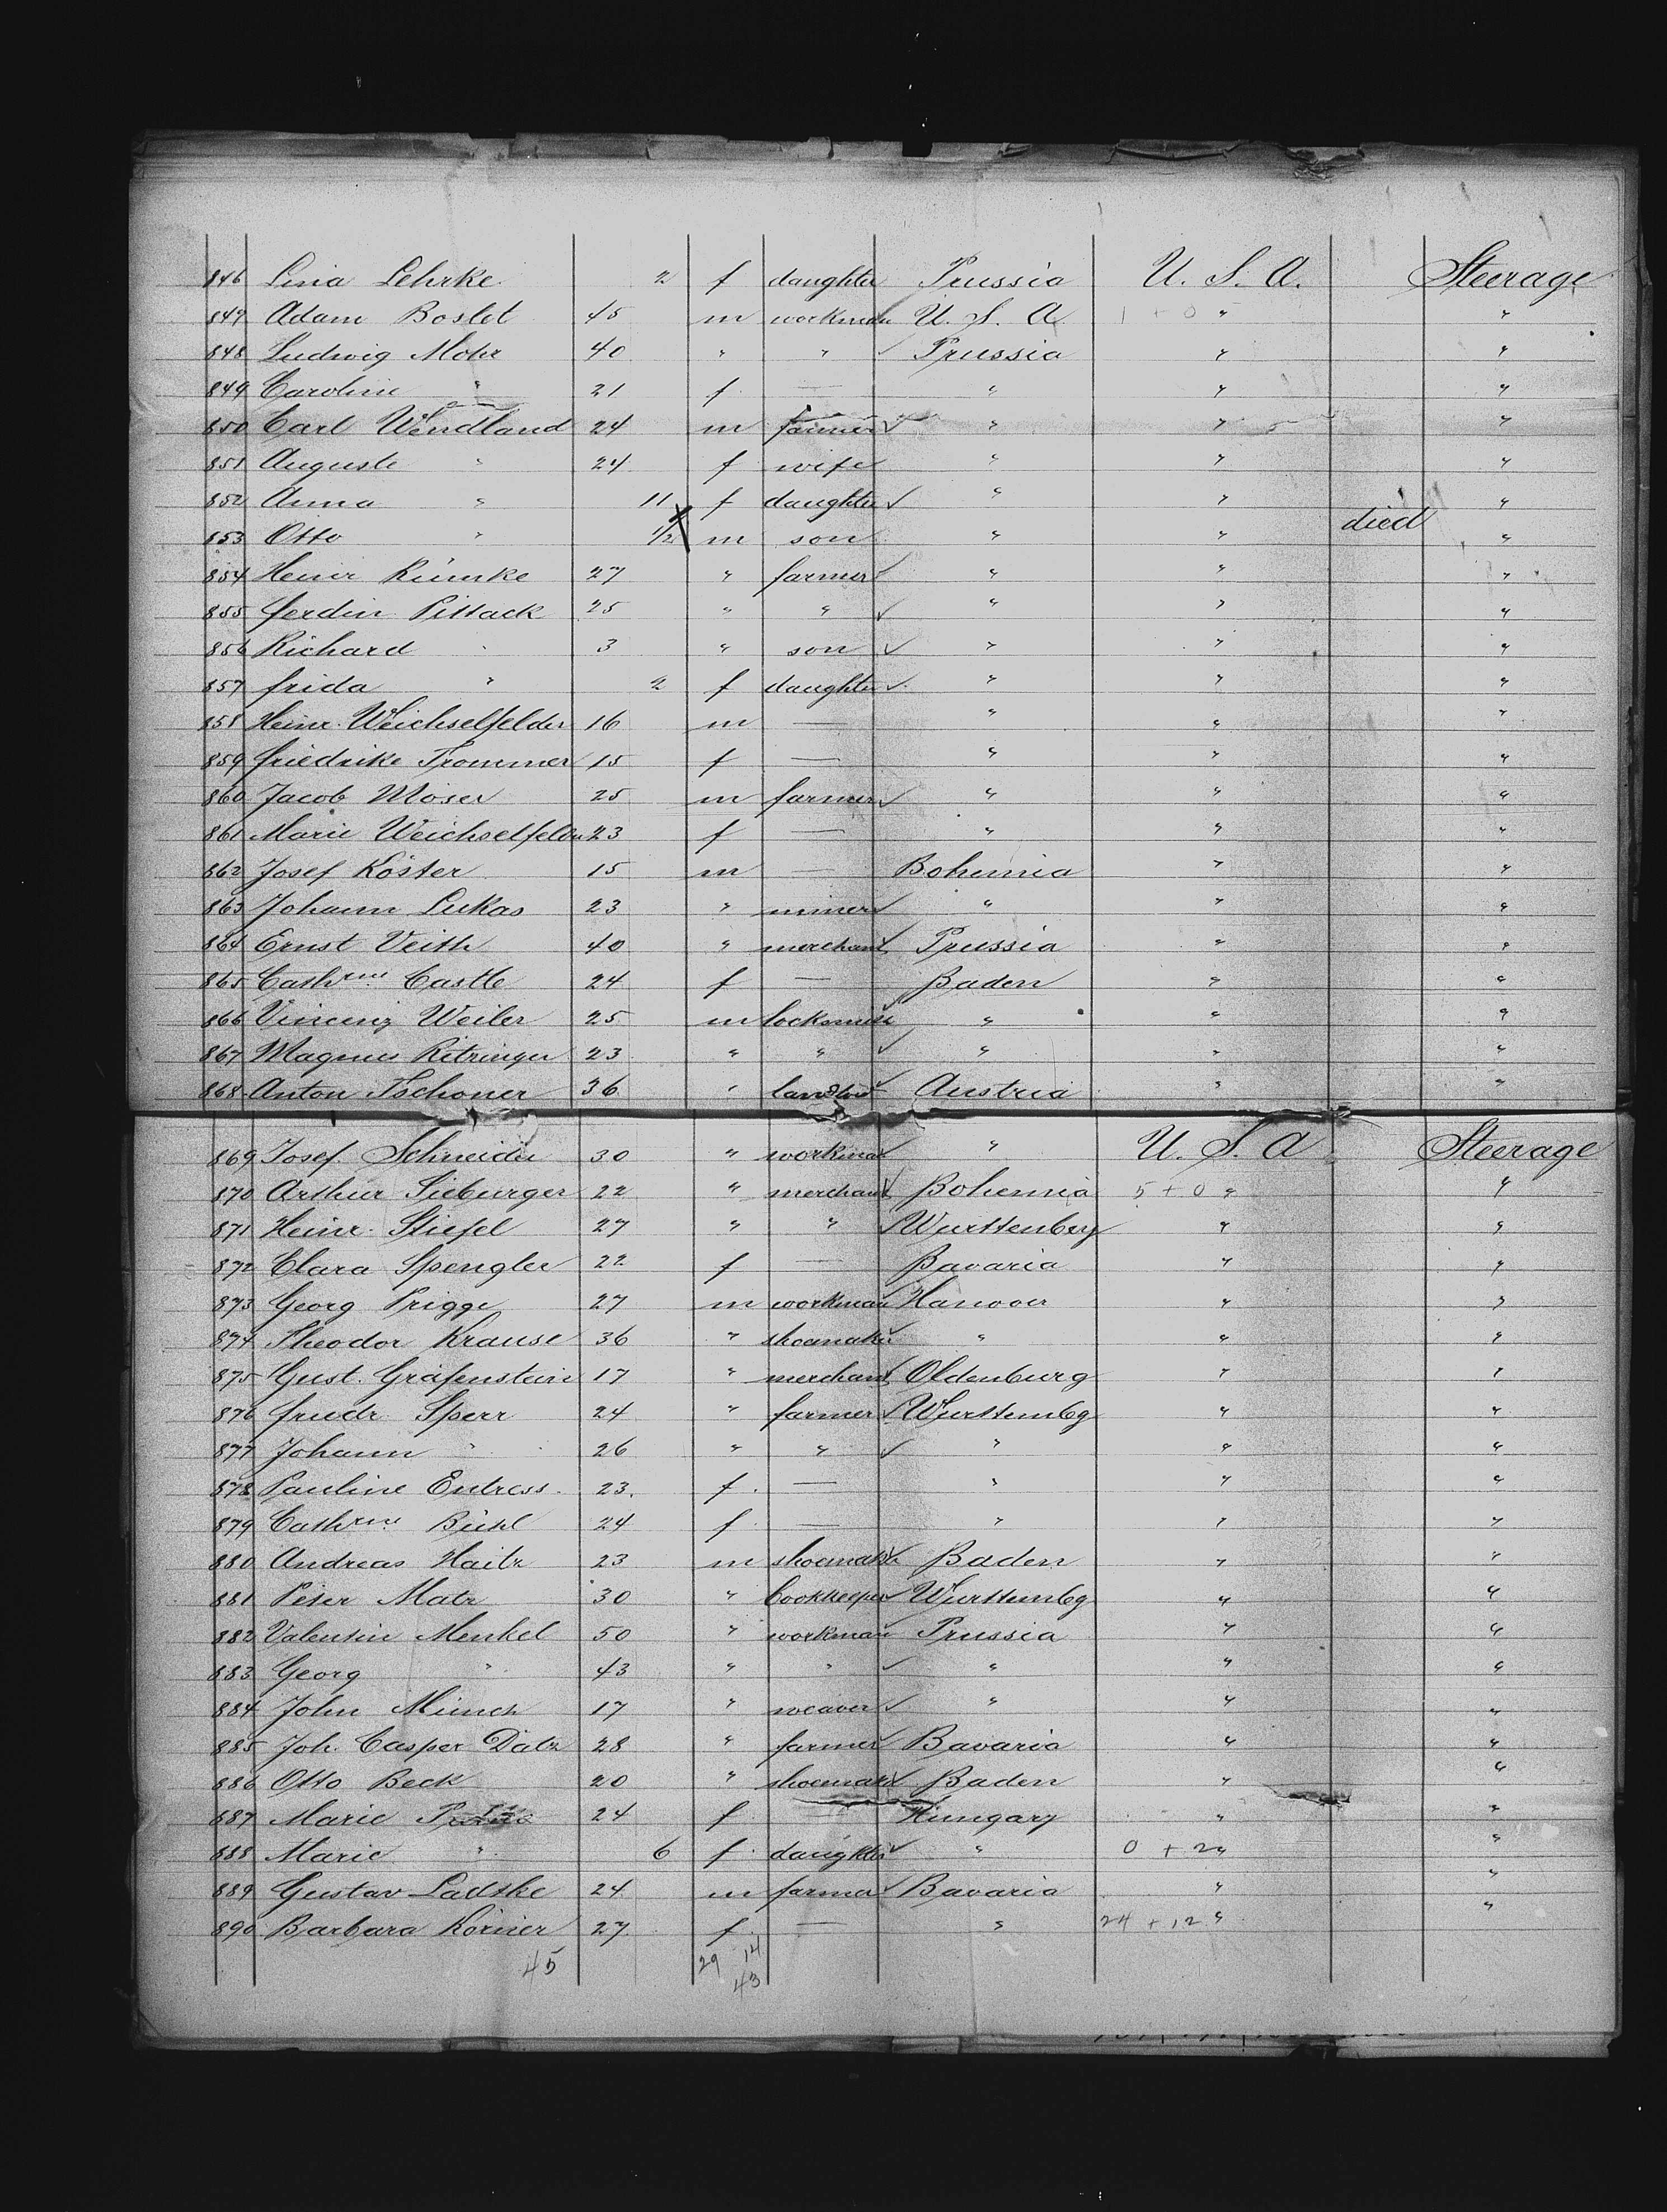 846 Lina Lehrke 2 f daughter Prussia U. S. A. Steerage
847 Adam Boslet 45 m workman U. S. A. 1 + 0 " "
848 Ludwig Mohr 40 " " ✓ Prussia " "
849 Caroline " 21 f — " " "
850 Carl Wendland 24 m farmer ✓ " " 5 "
851 Auguste " 24 f wife " " "
852 Anna " 11 f daughter ✓ " " "
853 Otto " 1/2 m son " " died "
854 Heinr Rümke 27 " farmer ✓ " " "
855 Ferdin Pittack 25 " " ✓ " " "
856 Richard " 3 " son ✓ " " "
857 Frida " 2 f daughter ✓ " " "
858 Heinr. Weichselfelder 16 m — " " "
859 Friedrike Trommer 15 f — " " "
860 Jacob Moser 25 m farmer ✓ " " "
861 Marie Weichselfelder 23 f — " " "
862 Josef Köster 15 m — Bohemia " "
863 Johann Lukas 23 " miner ✓ " " "
864 Ernst Veith 40 " merchant ✓ Prussia " "
865 Cathrine Castle 24 f — Baden " "
866 Vincenz Weiler 25 m locksmith " " "
867 Magnus Ritzinger 23 " " ✓ " " "
868 Anton Tschoner 36 " Austria " "
869 Josef Schneider 30 " workman ✓ " U. S. A. Steerage
870 Arthur Sieburger 22 " merchant ✓ Bohemia 5 + 0 " "
871 Heinr. Stiefel 27 " " ✓ Wurttenberg " "
872 Clara Spengler 22 f — Bavaria " "
873 Georg Prigge 27 m workman Hanover " "
874 Theodor Krause 36 " shoemaker ✓ " " "
875 Gust. Gräfenstein 17 " merchant ✓ Oldenburg " "
876 Friedr. Sperr 24 " farmer ✓ Wurttembg " "
877 Johann " 26 " " ✓ " " "
878 Pauline Entress 23. f. — " " "
879 Cathrine Bühl 24 f — " " "
880 Andreas Haitz 23 m shoemaker ✓ Baden " "
881 Peter Matz 30 " bookkeeper ✓ Wurttembg " "
882 Valentin Menkel 50 " workman Prussia " "
883 Georg " 43 " " ✓ " " "
884 John Münch 17 " weaver ✓ " " "
885 Joh. Casper Datz 28 " farmer ✓ Bavaria " "
886 Otto Beck 20 " shoemaker ✓ Baden " "
887 Marie 24 f — Hungary " "
888 Marie " 6 f. daughter ✓ " 0 + 2 " "
889 Gustav Ladtke 24 m farmer ✓ Bavaria " "
890 Barbara Körner 27 f — " 24 + 12 " "
45 29 14
43